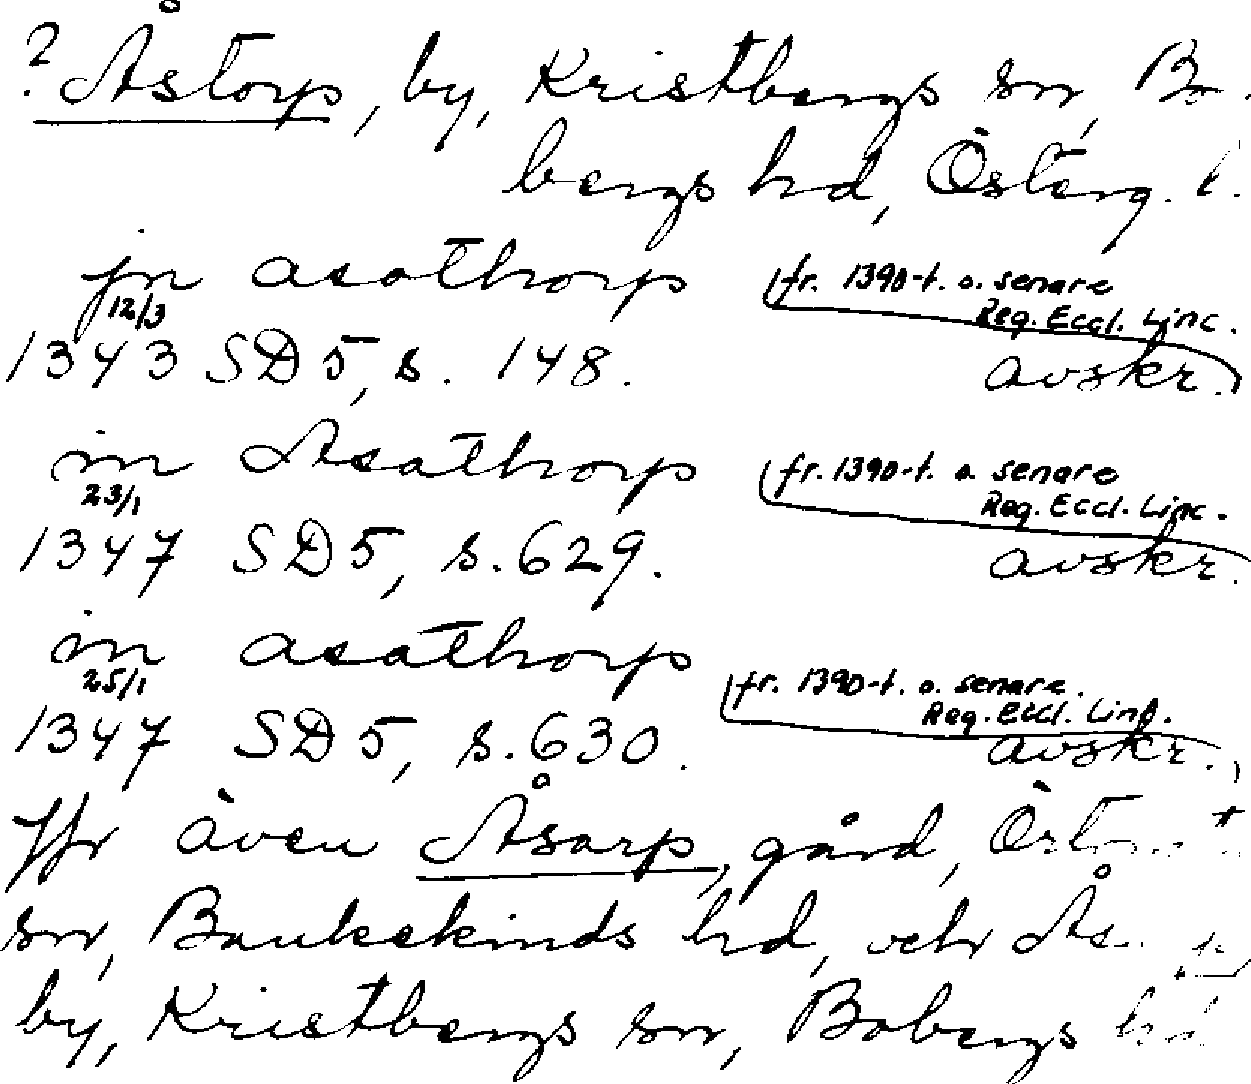 ? Åstorp, by, Kristbergs sn, Bo
bergs hd, Österg. l.
in asathorp
fr. 1390-t. o. senare
Reg. Eccl. Linc.
12/3
1343 SD 5, s. 148.
avskr.
in Asathorp
fr. 1390-t. o. senare
Reg. Eccl. Linc.
23/1
1347 SD 5, s. 629.
avskr.
in asathorp
fr. 1390-t. o. senare.
Reg. Eccl. Linc.
25/1
1347 SD 5, s. 630.
avskr.
Jfr även Åsarp, gård,
sn, Bankekinds hd, och
by, Kristbergs sn, Bobergs hd